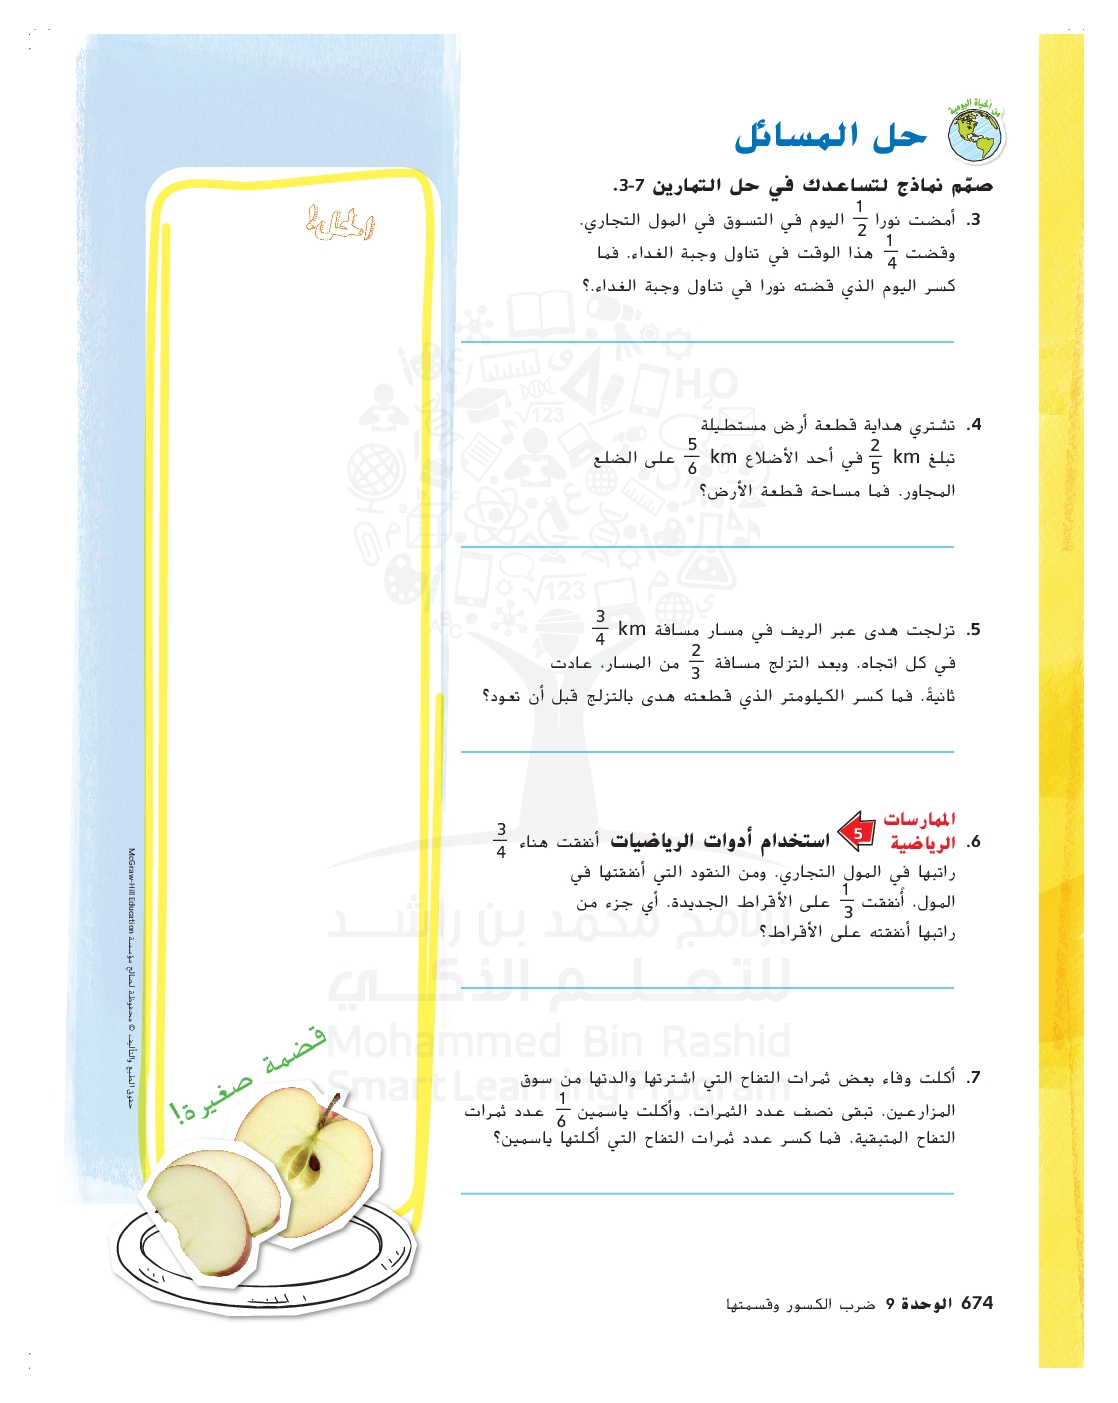 من الحياة اليومية
حل المسائل
صمّم نماذج لتساعدك في حل التمارين 7-3.
3. أمضت نورا 1/2 اليوم في التسوق في المول التجاري.
وقضت 1/4 هذا الوقت في تناول وجبة الغداء. فما
كسر اليوم الذي قضته نورا في تناول وجبة الغداء.؟
4. تشتري هداية قطعة أرض مستطيلة
تبلغ 2/5 km في أحد الأضلاع 5/6 km على الضلع
المجاور. فما مساحة قطعة الأرض؟
5. تزلجت هدى عبر الريف في مسار مسافة 3/4 km
في كل اتجاه. وبعد التزلج مسافة 2/3 من المسار، عادت
ثانيةً. فما كسر الكيلومتر الذي قطعته هدى بالتزلج قبل أن تعود؟
6. الممارسات الرياضية 5 استخدام أدوات الرياضيات أنفقت هناء 3/4
راتبها في المول التجاري. ومن النقود التي أنفقتها في
المول، أنفقت 1/3 على الأقراط الجديدة. أي جزء من
راتبها أنفقته على الأقراط؟
7. أكلت وفاء بعض ثمرات التفاح التي اشترتها والدتها من سوق
المزارعين. تبقى نصف عدد الثمرات. وأكلت ياسمين 1/6 عدد ثمرات
التفاح المتبقية. فما كسر عدد ثمرات التفاح التي أكلتها ياسمين؟
الحل!
قضمة صغيرة!
حقوق الطبع والتأليف © محفوظة لصالح مؤسسة McGraw-Hill Education
برنامج محمد بن راشد
للتعلم الذكي
Mohammed Bin Rashid
Smart Learning Program
674 الوحدة 9 ضرب الكسور وقسمتها